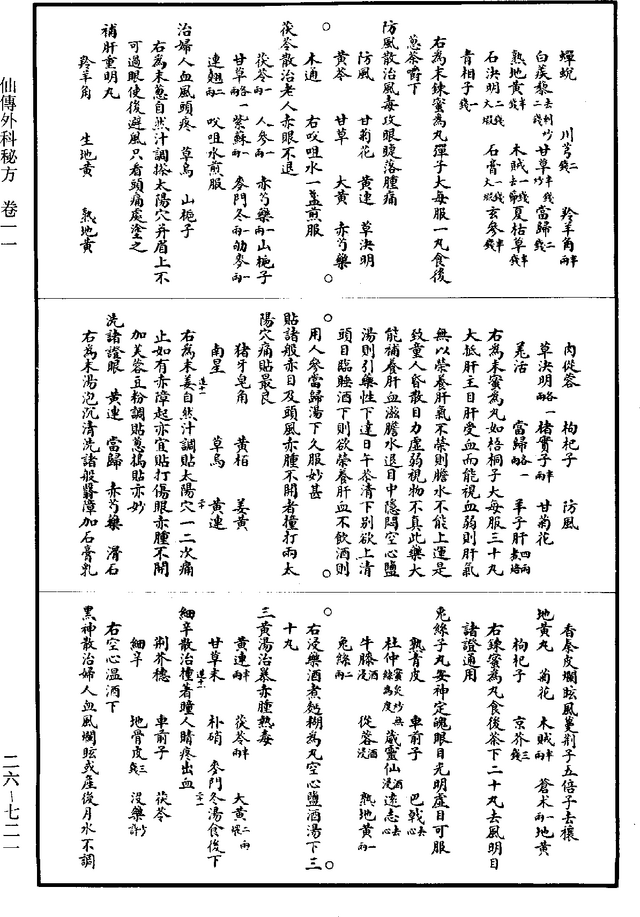 蟬蛻 川芎二錢 羚羊角半兩
白蒺藜二錢去刺炒 甘草半錢炒 當歸二錢
熟地黃半錢 木賊一錢去節 夏枯草半錢
石決明二錢大煅 石膏一錢大煅 玄參半錢
青相子一錢
右為末鍊蜜為丸彈子大每服一丸食後
葱茶嚼下
防風散治風毒攻眼瞼落腫痛
防風 甘菊花 黃連 草決明
黃芩 甘草 大黃 赤芍藥
木通 右㕮咀水一盞煎服
茯苓散治老人赤眼不退
茯苓一兩 人參一兩 赤芍藥一兩 山梔子
甘草一兩 紫蘇一兩 麥門冬一兩
連翹二兩 㕮咀水煎服
治婦人血風頭疼 草烏 山梔子
右為末葱自然汁調搽太陽穴并眉上不
可過眼使後避風只看頭痛處塗之
補肝重明丸
羚羊角 生地黃 熟地黃
肉從容 枸杞子 防風
草決明一兩 楮實子半兩 甘菊花
羌活 當歸一兩 羊子肝四兩煮焙
右為末蜜為丸如梧桐子大每服三十丸
大抵肝主目肝受血而能視血弱則肝氣
無以榮養肝氣不榮則膽水不能上運是
致童人昏散目力虛弱視物不真此藥大
能補養肝血滋膽水退目中隱悶空心鹽
湯則引藥性下達日午茶清下別欲上清
頭目臨睡酒下則欲榮養肝血不飲酒則
用人參當歸湯下久服妙甚
貼諸般赤目及頭風赤腫不開者撞打兩太
陽穴痛貼最良
猪牙皂角 黃栢 姜黃
南星 草烏 黃連
右為末姜自然汁調貼太陽穴一二次痛
止如有赤障起亦宜貼打傷眼赤腫不開
加芙蓉豆粉調貼葱搗貼亦妙
洗諸證眼 黃連 當歸 赤芍藥 滑石
右為末湯泡沉清洗諸般醫障加石膏乳
香秦皮爛眩風蔓荆子五倍子去穰
地黃丸 菊花 木賊半兩 蒼术一兩 地黃
枸杞子 京芥三錢
右鍊蜜為丸食後茶下二十丸去風明目
諸證通用
兔絲子丸安神定魄眼目光明虛目可服
熟青皮 車前子 巴戟去心
杜仲 葳靈仙酒浸 遠志去心
牛膝酒浸 從蓉酒浸 熟地黃一兩
兔絲二兩
右浸藥酒煮麪糊為丸空心鹽酒湯下三
十丸
三黃湯治暴赤腫熱毒
黃連半兩 茯苓半兩 大黃二兩
甘草末 朴硝 麥門冬湯食後下
細辛散治撞著瞳人睛疼出血
荆芥穗 車前子 茯苓
細辛 地骨皮三錢 沒藥少許
右空心温酒下
黑神散治婦人血風爛眩或産後月水不調
仙傳外科秘方 卷一一
二六-七二一